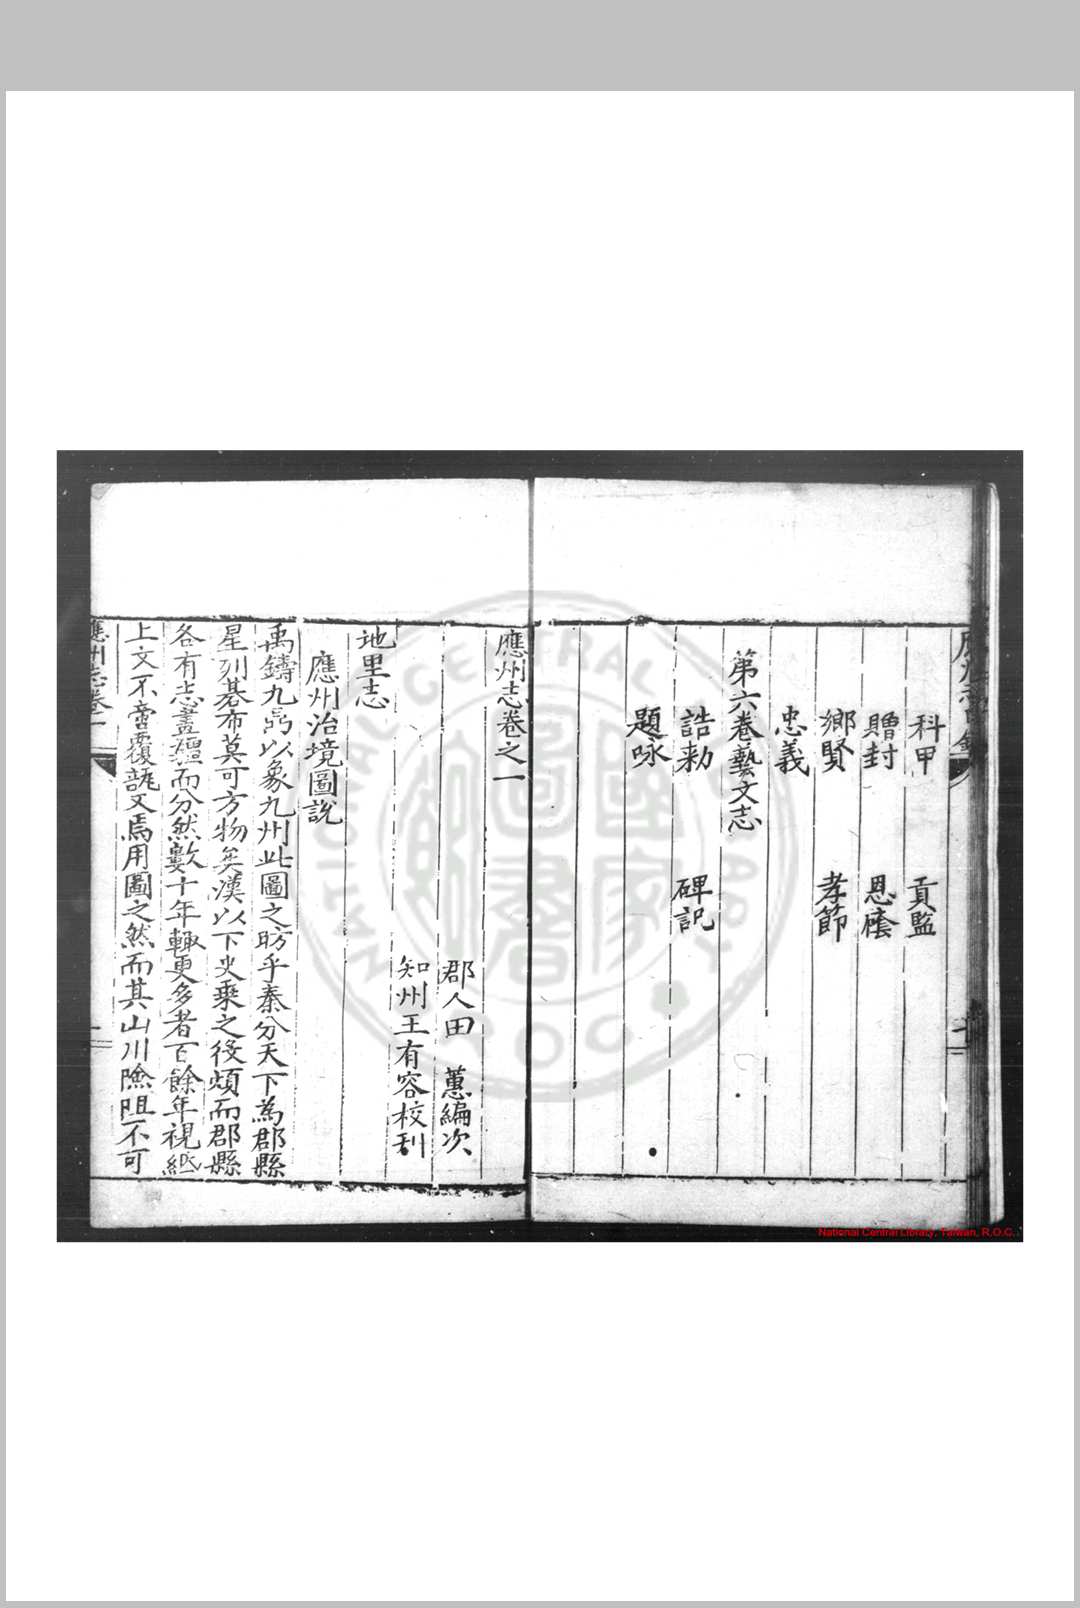 科甲　貢監
贈封　恩廕
鄉賢　孝節
忠義
第六卷藝文志
誥勅　碑記
題咏
應州志卷之一
郡人田　蕙編次
知州王有容校刋
地里志
應州治境圖說
禹鑄九鼎以象九州此圖之昉乎秦分天下為郡縣
星列碁布莫可方物矣漢以下史乗之後煩而郡縣
各有志畫疆而分然數十年輙更多者百餘年視經
上文不啻覆瓿又焉用圖之然而其山川險阻不可
應州志卷一
National Central Library, Taiwan, R.O.C.
NATIONAL CENTRAL LIBRARY
ROC
國家圖書館